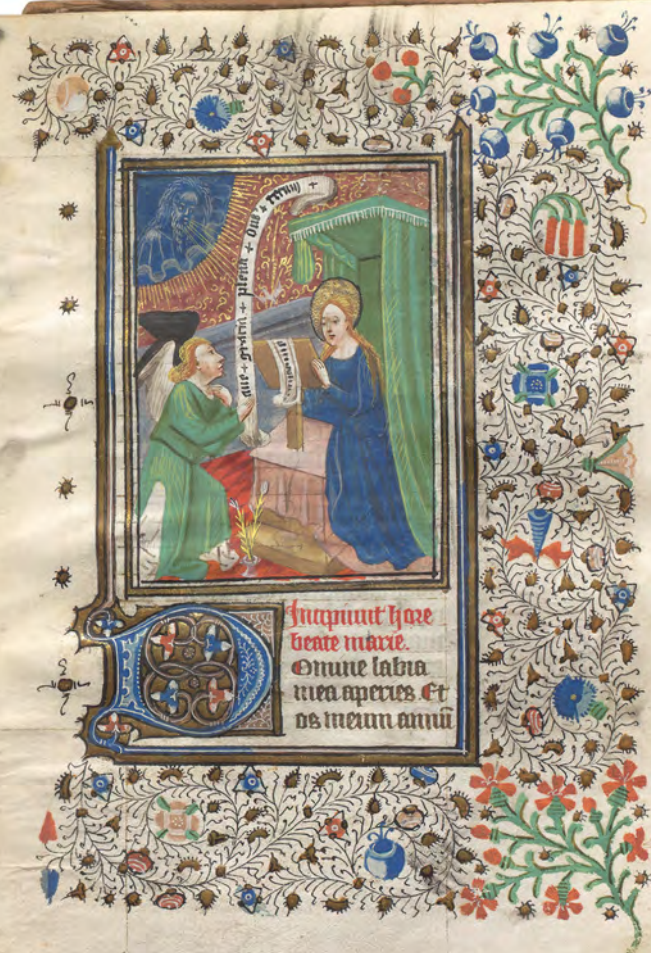 aue + gracia + plena + dns + tecum +
Incipiunt hore
beate marie.
Domine labia
mea aperies Et
os meum annū